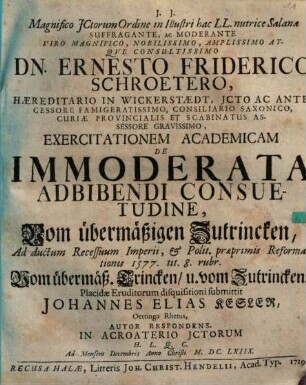 J. J.
Magnifico JCtorum Ordine in Illustri hac LL. nutrice Salana
SUFFRAGANTE, AC MODERANTE
VIRO MAGNIFICO, NOBILISSIMO, AMPLISSIMO AT-
QVE CONSULTISSIMO
DN. ERNESTO FRIDERICO
SCHROETERO,
HÆREDITARIO IN WICKERSTÆDT, JCTO AC ANTE
CESSORE FAMIGERATISSIMO, CONSILIARIO SAXONICO,
CURIÆ PROVINCIALIS ET SCABINATUS AS-
SESSORE GRAVISSIMO,
EXERCITATIONEM ACADEMICAM
DE
IMMODERATA
ADBIBENDI CONSUE-
TUDINE,
Vom übermäßigen Zutrincken,
Ad ductum Recessuum Imperii, & Polit. præprimis Reforma
tionis 1577. tit. 8. rubr.
Vom übermäß. Trincken/ u. vom Zutrincken,
Placidæ Eruditorum disquisitioni submittit
JOHANNES ELIAS KESLER,
Oettinga Rhetus,
AUTOR RESPONDENS.
IN ACROATERIO JCTORUM
H. L. Q. C.
Ad Mensem Decembris Anno Christi M. DC. LXIIX.
RECUSA HALÆ, Litteris JOH. CHRIST. HENDELII, Acad. Typ.